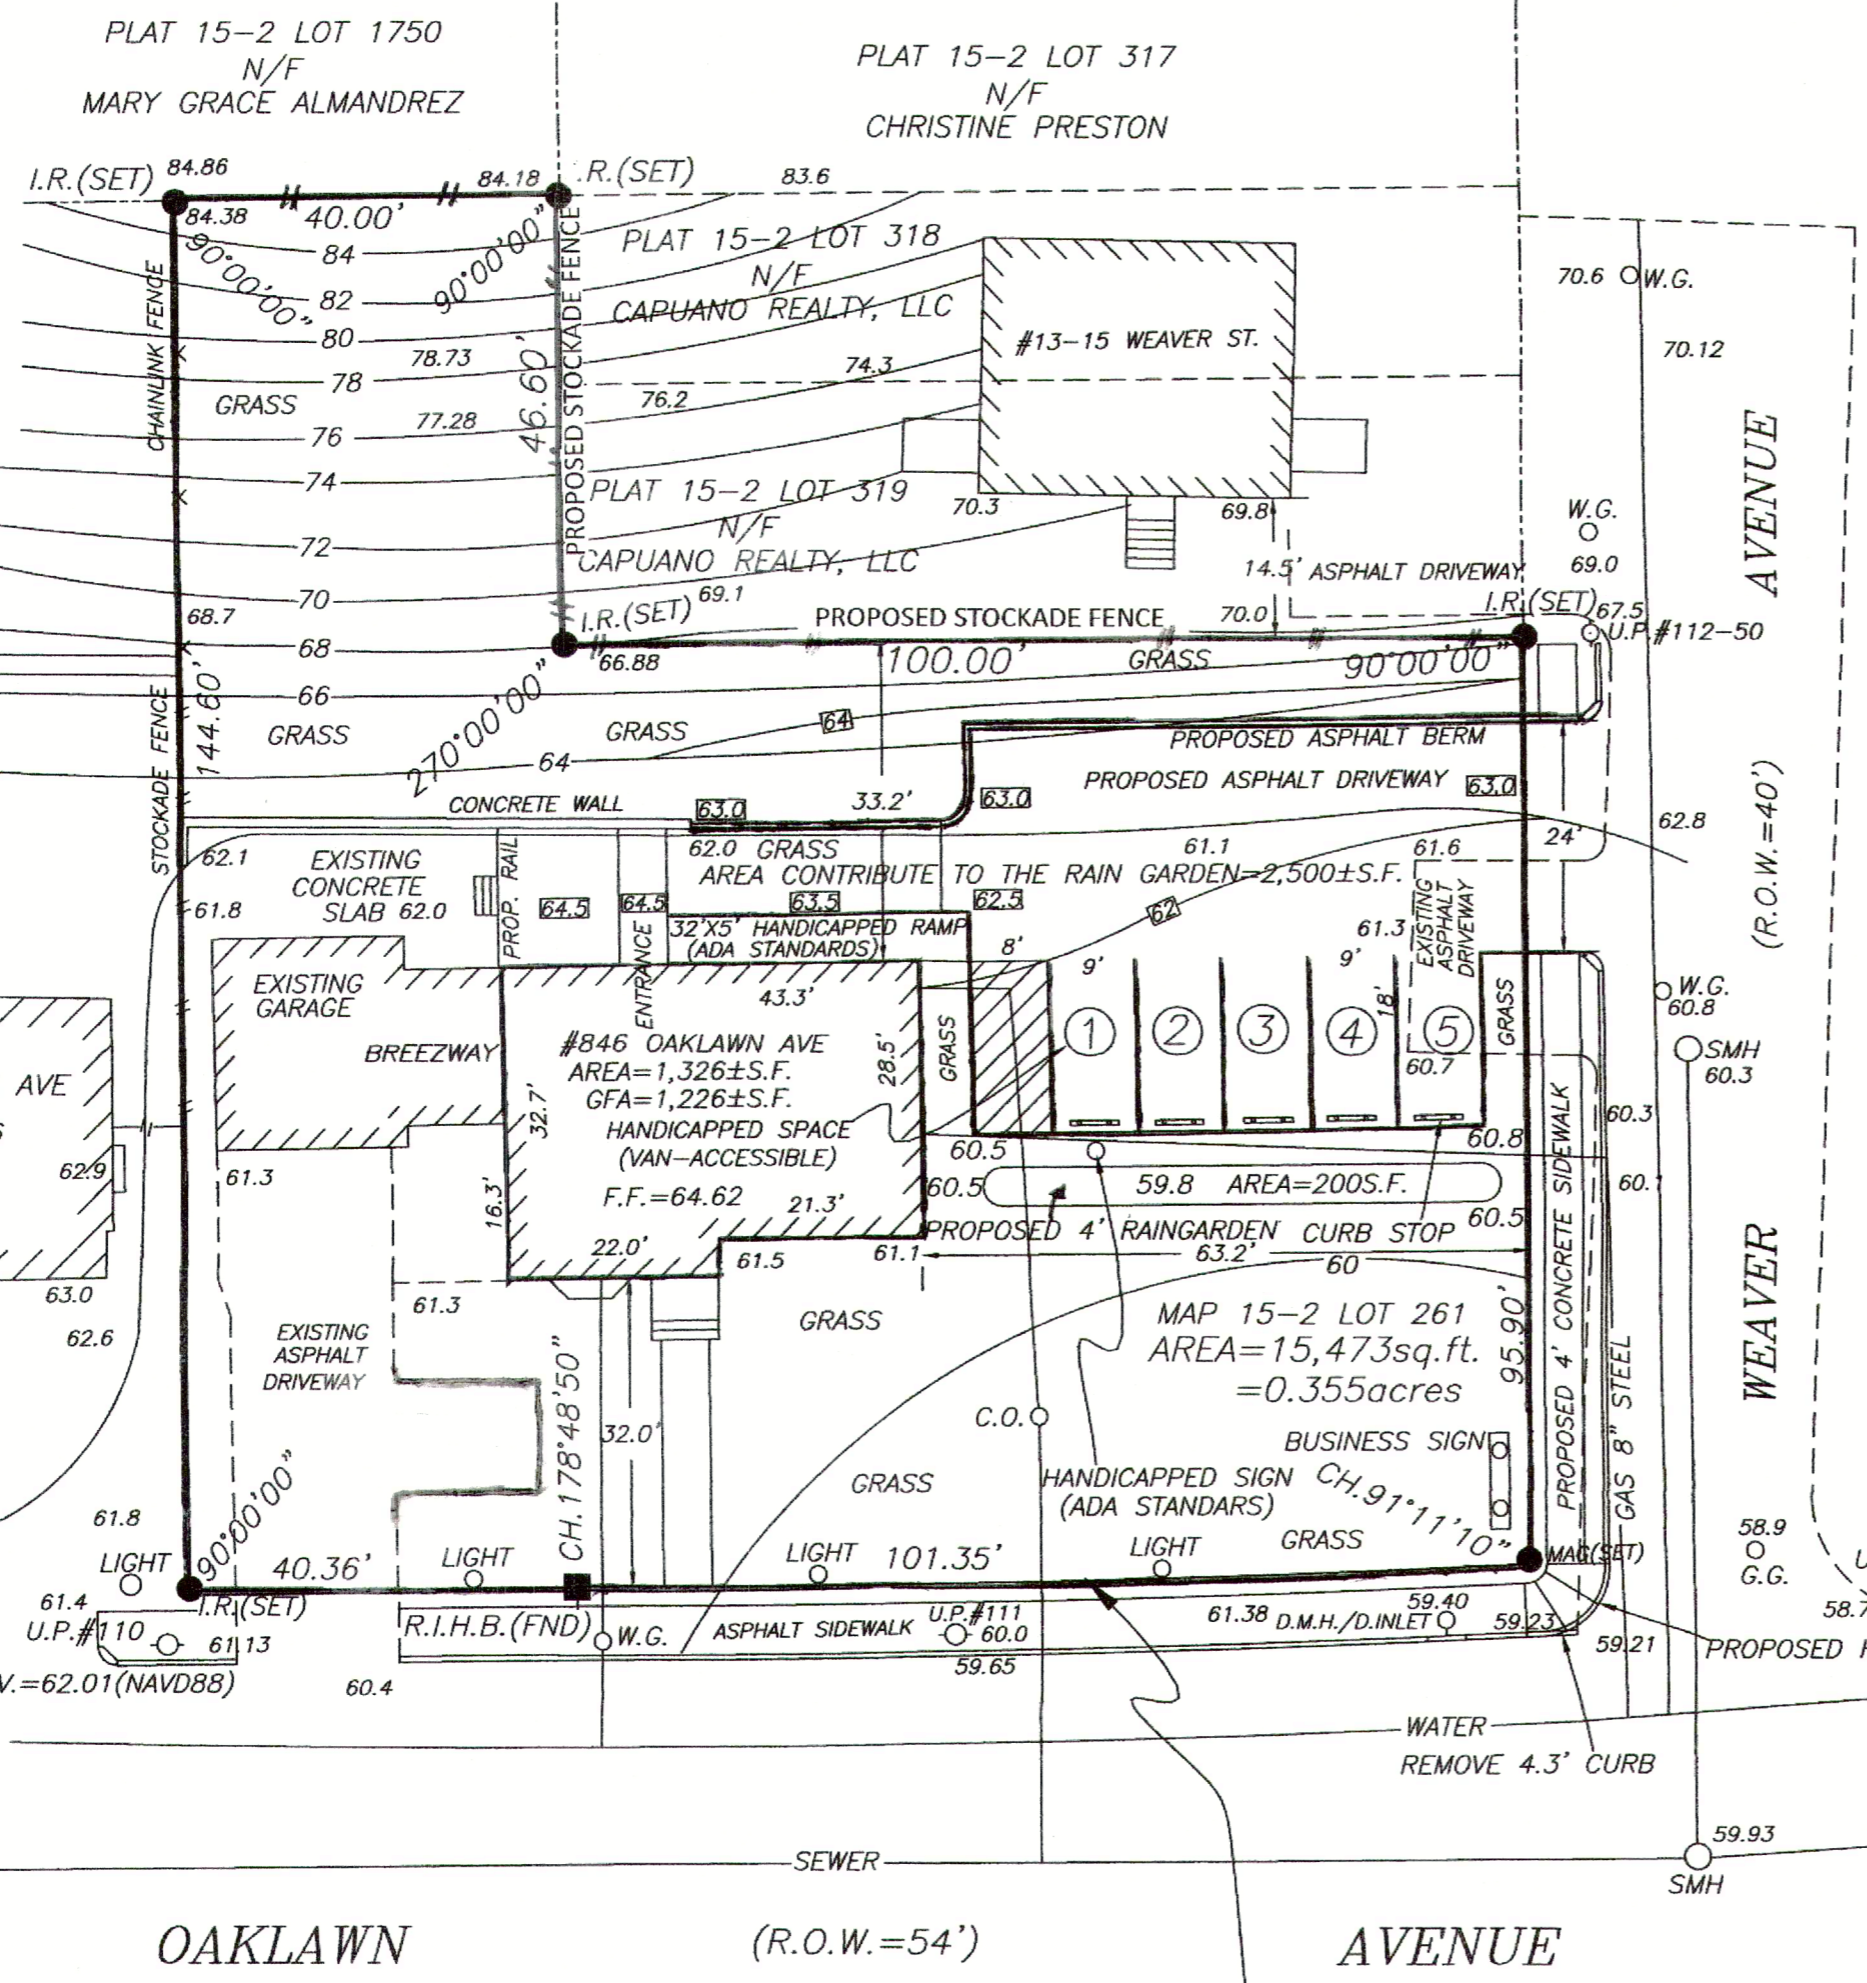 PLAT 15-2 LOT 1750
N/F
MARY GRACE ALMANDREZ
PLAT 15-2 LOT 317
N/F
CHRISTINE PRESTON
I.R.(SET)
84.86
84.18
.R.(SET)
83.6
84.38
40.00'
90°00'00"
90°00'00"
84
82
80
78
78.73
GRASS
76
77.28
74
72
70
68.7
68
66
CHAINLINK FENCE
46.60'
PROPOSED STOCKADE FENCE
PLAT 15-2 LOT 318
N/F
CAPUANO REALTY, LLC
#13-15 WEAVER ST.
74.3
76.2
PLAT 15-2 LOT 319
N/F
CAPUANO REALTY, LLC
70.3
69.8
69.1
14.5'
ASPHALT DRIVEWAY
70.6
W.G.
70.12
W.G.
69.0
AVENUE
I.R.(SET)
PROPOSED STOCKADE FENCE
70.0
I.R.(SET)
67.5
U.P.#112-50
66.88
100.00'
GRASS
90°00'00"
STOCKADE FENCE
144.60'
GRASS
270°00'00"
GRASS
64
64
PROPOSED ASPHALT BERM
PROPOSED ASPHALT DRIVEWAY
63.0
CONCRETE WALL
63.0
33.2'
63.0
62.8
24'
(R.O.W.=40')
62.1
EXISTING
CONCRETE
SLAB 62.0
61.8
PROP. RAIL
62.0 GRASS
61.1
61.6
AREA CONTRIBUTE TO THE RAIN GARDEN=2,500±S.F.
64.5
64.5
63.5
62.5
62
61.3
EXISTING
ASPHALT
DRIVEWAY
32'X5' HANDICAPPED RAMP
(ADA STANDARDS)
ENTRANCE
8'
9'
9'
18'
EXISTING
GARAGE
BREEZWAY
43.3'
#846 OAKLAWN AVE
AREA=1,326±S.F.
GFA=1,226±S.F.
HANDICAPPED SPACE
(VAN-ACCESSIBLE)
F.F.=64.62
28.5'
32.7'
16.3'
21.3'
22.0'
GRASS
1
2
3
4
5
60.7
GRASS
W.G.
60.8
SMH
60.3
AVE
62.9
61.3
60.5
60.8
60.3
60.5
59.8
AREA=200S.F.
60.1
PROPOSED 4' RAINGARDEN
CURB STOP
60.5
61.5
61.1
63.2'
60
63.0
62.6
61.3
EXISTING
ASPHALT
DRIVEWAY
GRASS
MAP 15-2 LOT 261
AREA=15,473sq.ft.
=0.355acres
95.90'
PROPOSED 4' CONCRETE SIDEWALK
GAS 8" STEEL
WEAVER
CH.178°48'50"
32.0'
C.O.
BUSINESS SIGN
GRASS
HANDICAPPED SIGN
(ADA STANDARS)
CH.91°11'10"
GRASS
61.8
LIGHT
90°00'00"
40.36'
LIGHT
LIGHT
101.35'
LIGHT
MAG(SET)
58.9
G.G.
61.4
I.R.(SET)
U.P.#110
61.13
R.I.H.B.(FND)
W.G.
ASPHALT SIDEWALK
U.P.#111
60.0
61.38
D.M.H./D.INLET
59.40
59.23
59.21
PROPOSED
58.7
V.=62.01(NAVD88)
60.4
59.65
WATER
REMOVE 4.3' CURB
SEWER
59.93
SMH
OAKLAWN
(R.O.W.=54')
AVENUE